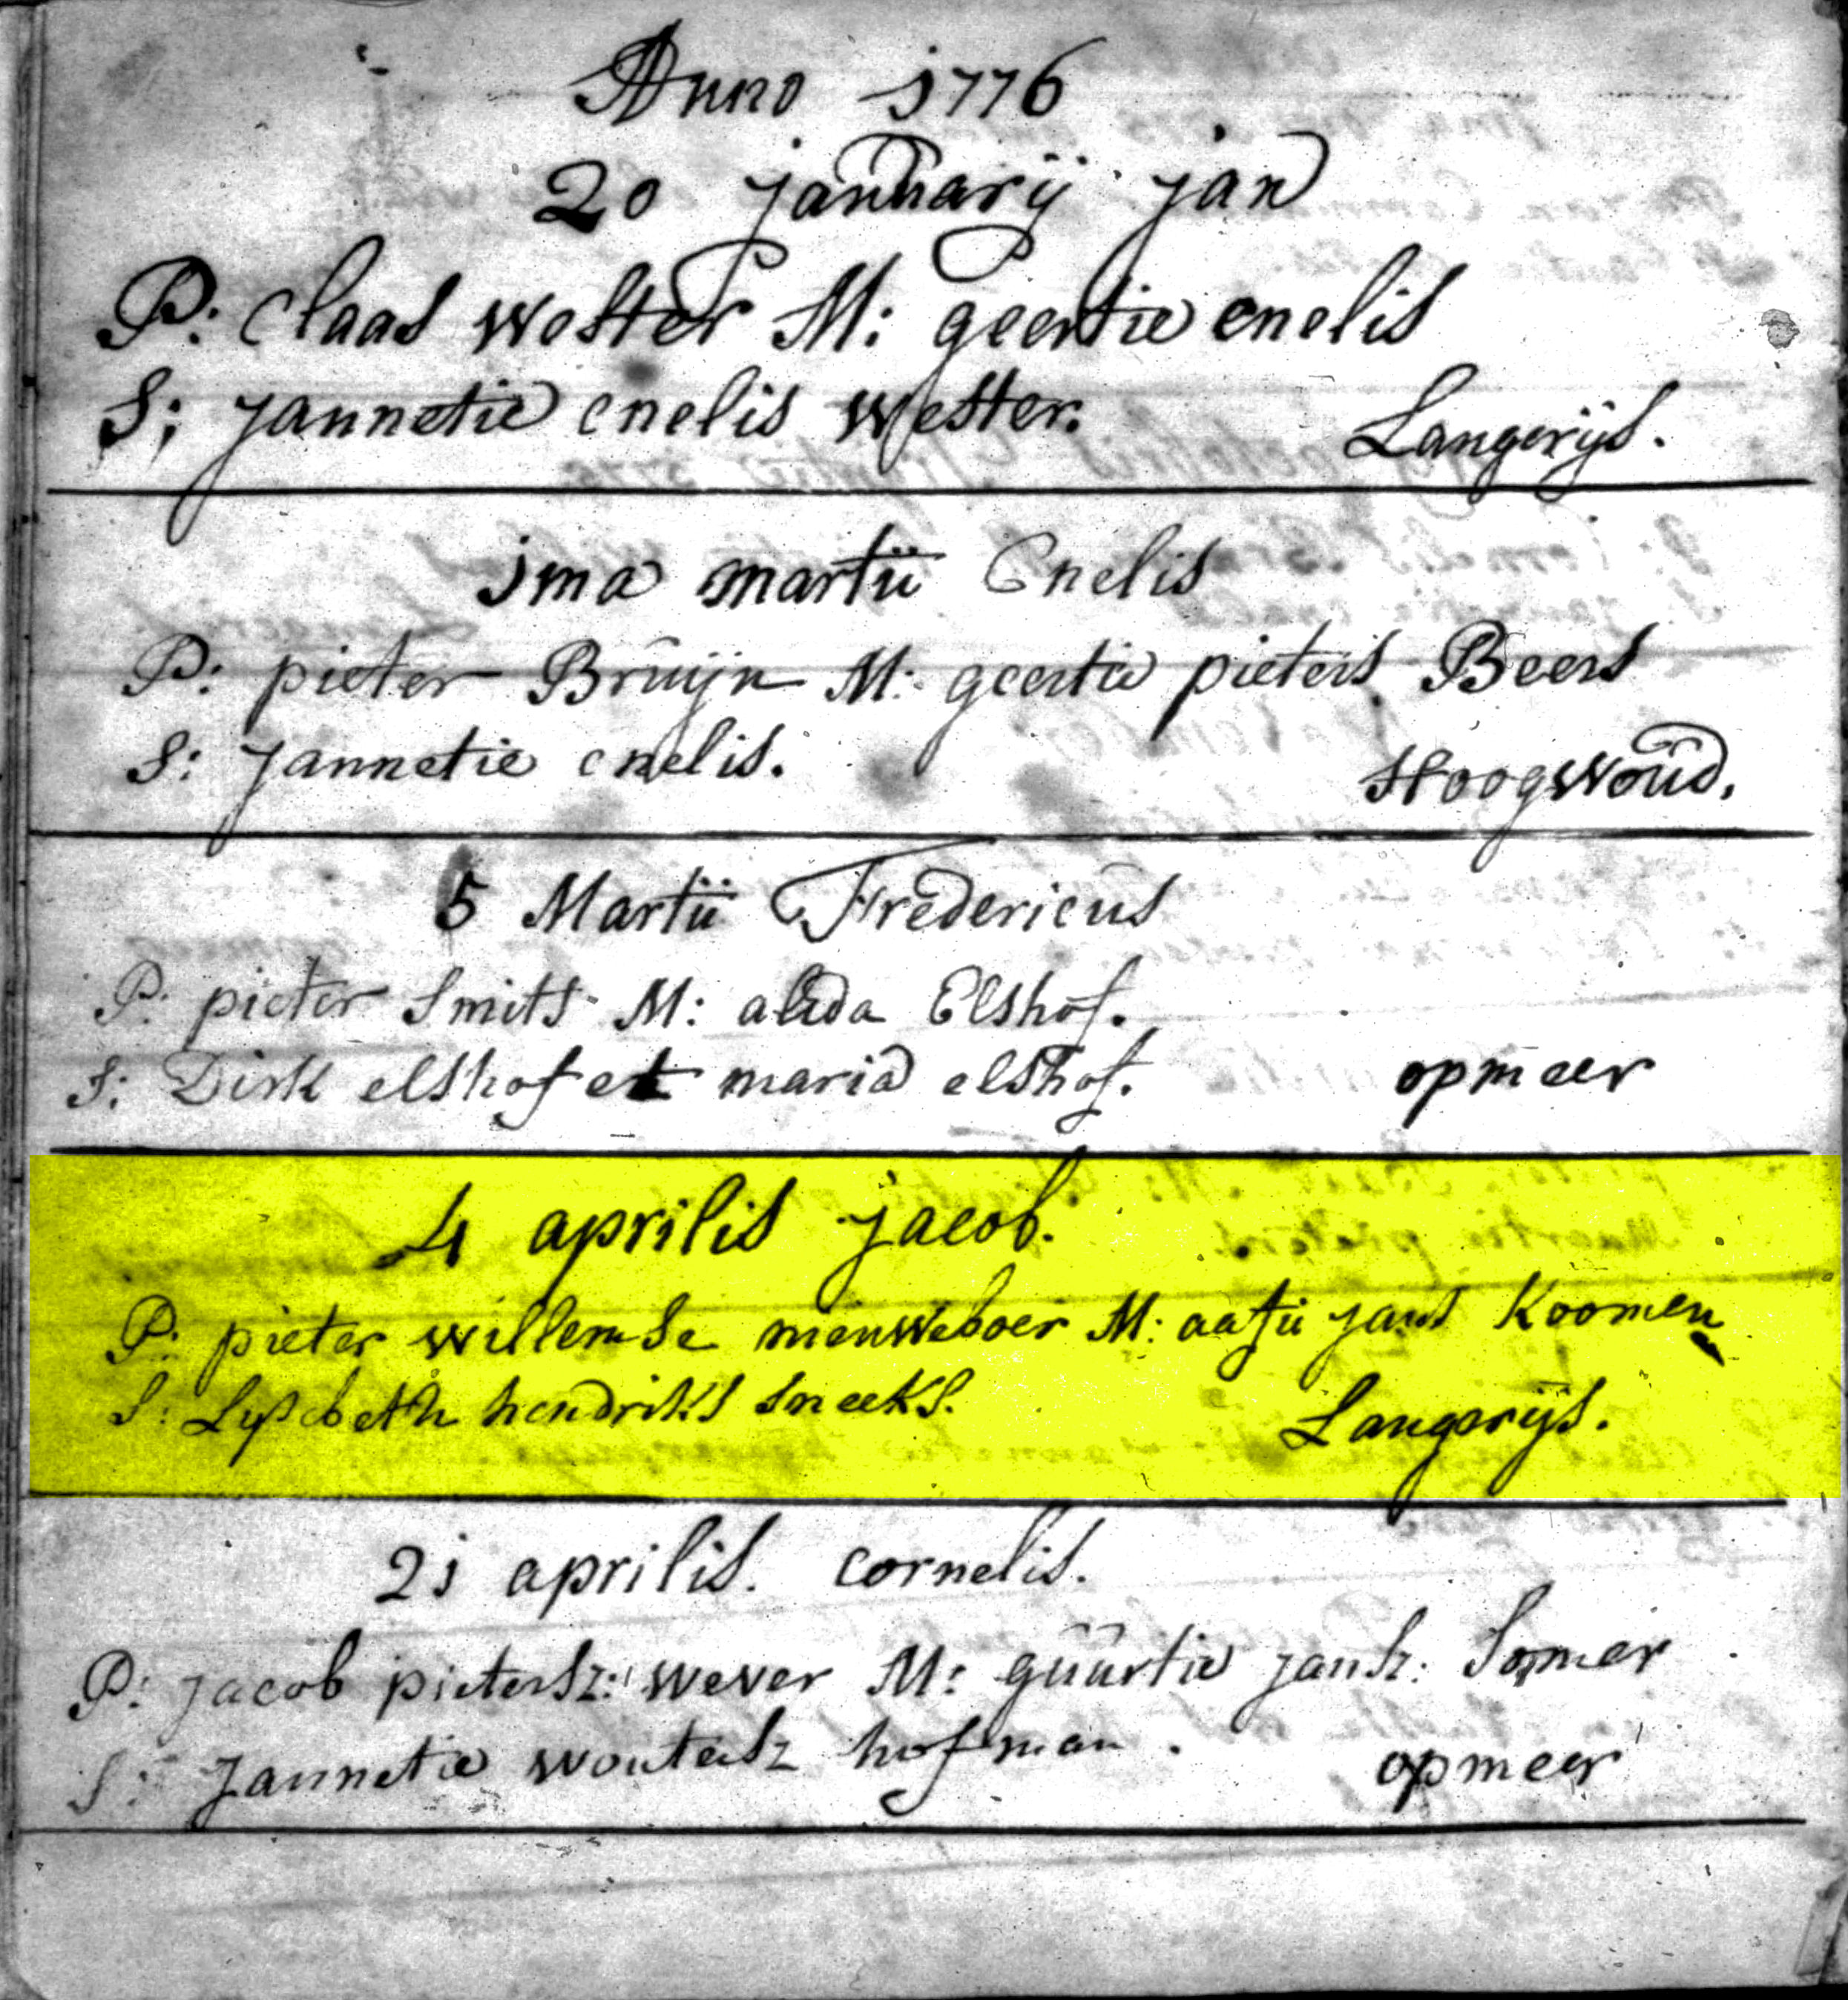 Anno 1776
20 januarij jan
P: Claas wester M: geertie cnelis
S: Jannetie cnelis wester.
Langerijs.
1ma martii Cnelis
P: pieter Bruijn M: geertie pieters Beers
S: Jannetie cnelis.
Hoogwoud.
5 Martii Fredericus
P: pieter Smits M: alida Elshof.
S: Dirk elshof et maria elshof.
opmeer
4 aprilis jacob.
P: pieter willemse nieuweboer M: aafii jans Koomen
S: Lysebeth hendriks sneeks.
Langerijs.
21 aprilis. cornelis.
P: jacob pietersz: wever M: guurtie jansz: Somer
S: Jannetie woutersz hofman.
opmeer